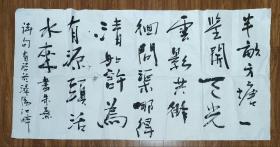 半畝方塘一
鑒開天光
雲影共徘
徊問渠哪得
清如許為
有源頭活
水來書朱熹
詩句